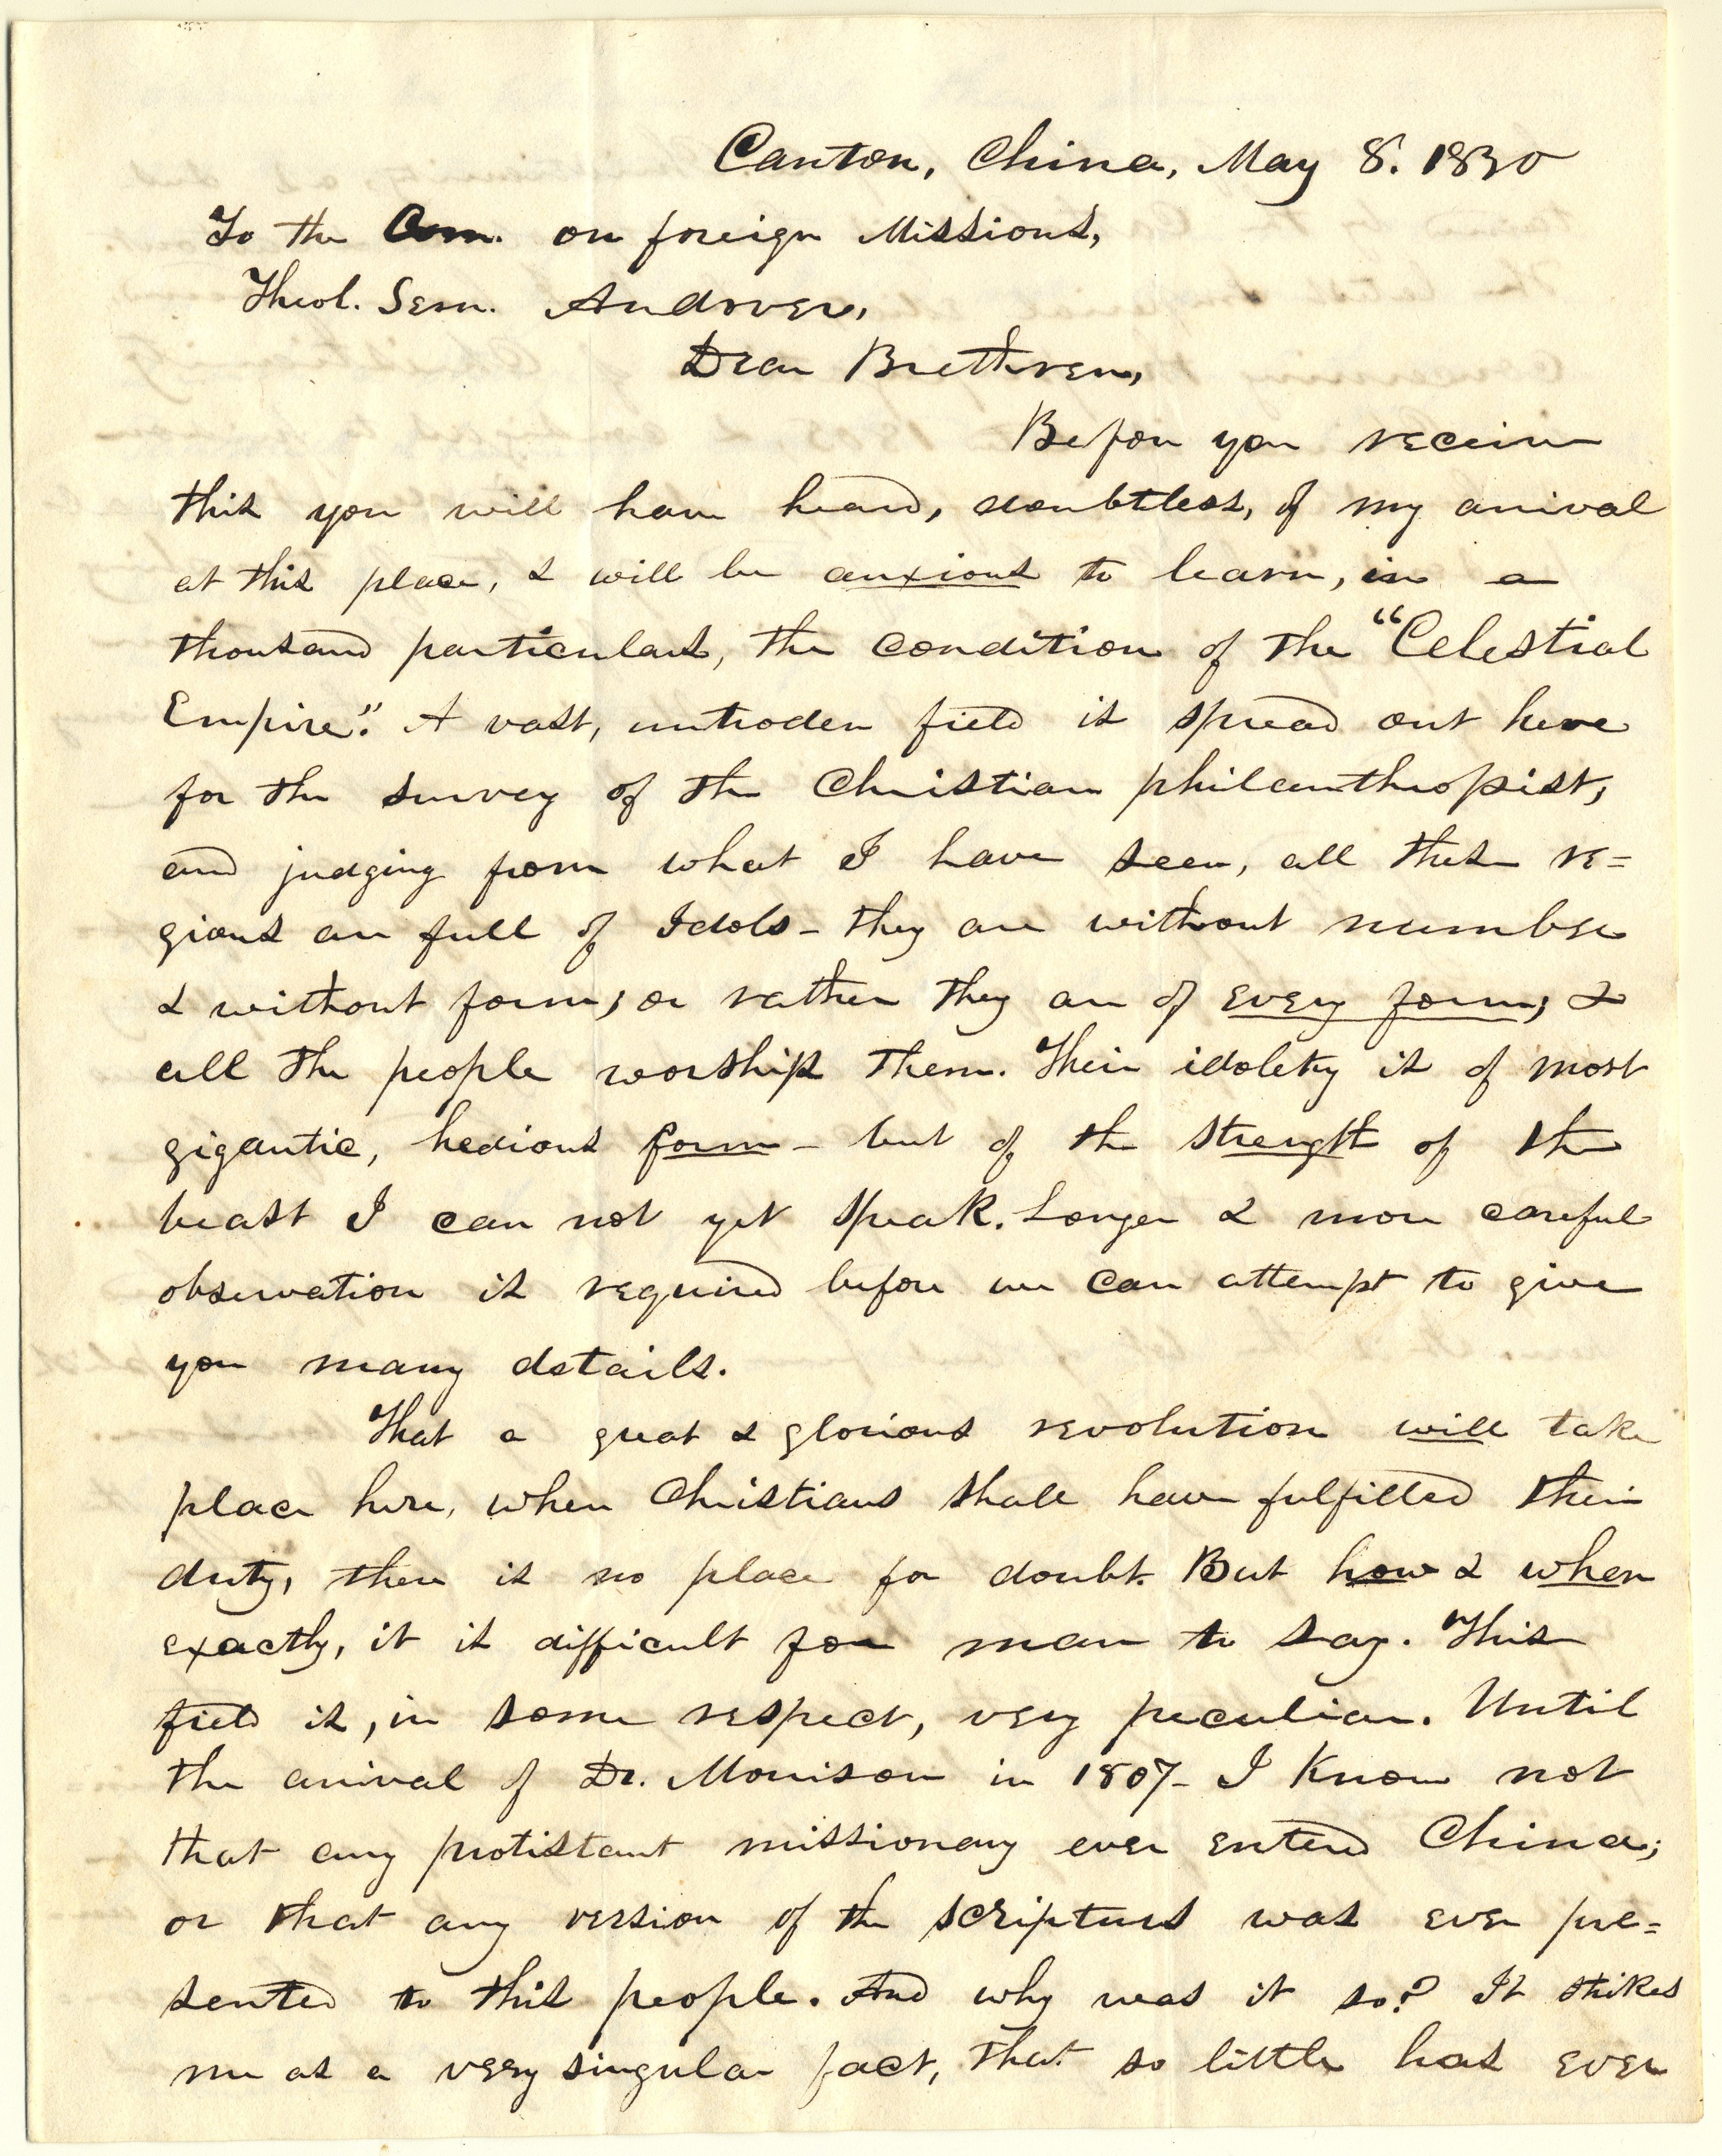 Canton, China, May 8. 1830
To the Com. on foreign Missions,
Theol. Sem. Andover,
Dear Brethren,
Before you receive
this you will have heard, doubtless, of my arrival
at this place, & will be anxious to learn, in a
thousand particulars, the condition of the "Celestial
Empire". A vast, untroden field is spread out here
for the survey of the Christian philanthropist,
and judging from what I have seen, all these re=
gions are full of Idols - they are without number
& without form; or rather they are of every form; &
all the people worship them. Their idoletry is of most
gigantic, hedious form - but of the strength of the
beast I can not yet speak. Longer & more careful
observation is required before we can attempt to give
you many details.
That a great & glorious revolution will take
place here, when Christians shall have fulfilled their
duty, there is no place for doubt. But how & when
exactly, it is difficult for man to say. This
field is, in some respect, very peculiar. Until
the arrival of Dr. Morrison in 1807 - I know not
that any protistant missionary ever entered China;
or that any version of the scriptures was ever pre=
sented to this people. And why was it so? It strikes
me as a very singular fact, that so little has ever